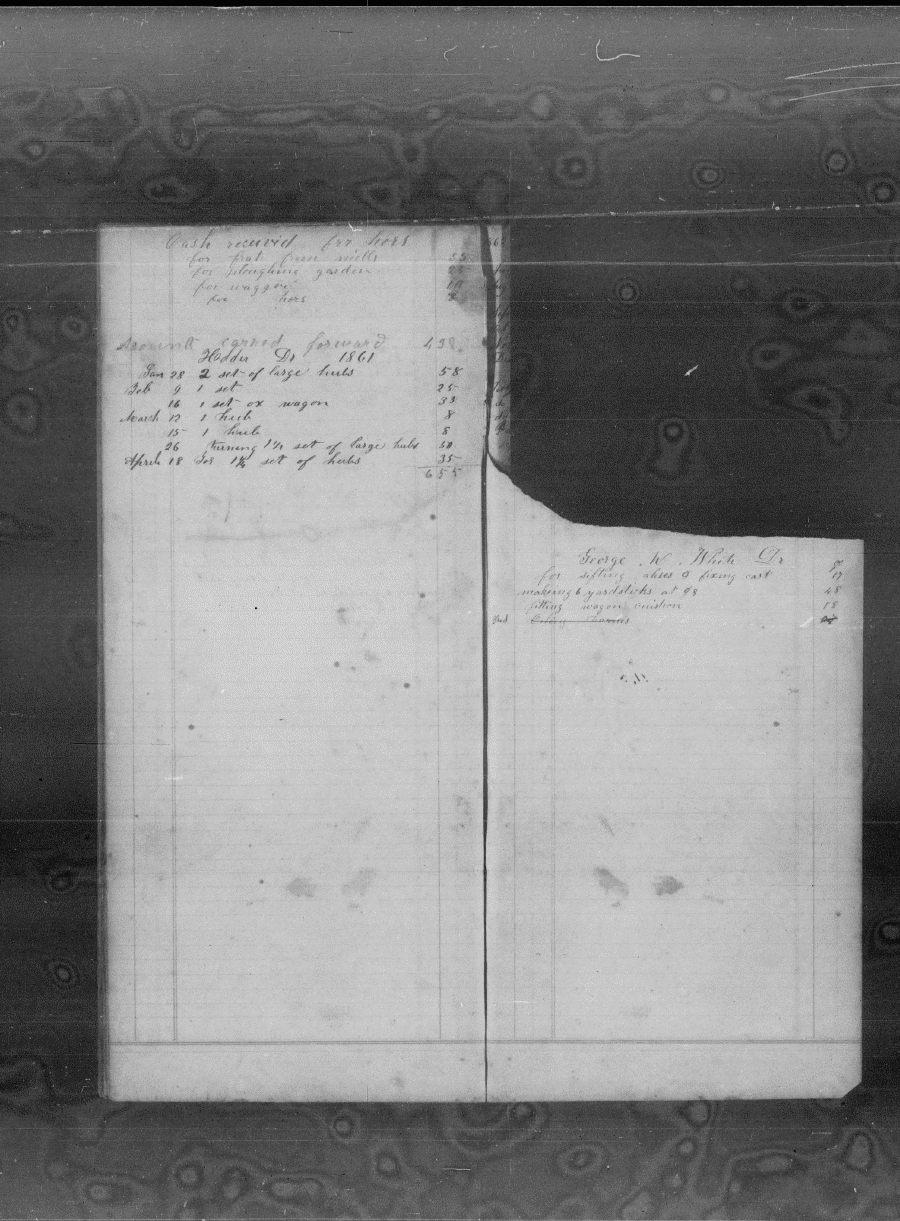 Cash received for hors
for frat from mills 55
for ploughing garden 25
for waggon 10
for hors
Amount carried forward 438
Hodder Dr 1861
Jan 28 2 set of large hubs 58
Feb 9 1 set 25
16 1 set ox wagon 33
March 12 1 hub 8
15 1 hub 8
26 turning 1½ set of large hubs 50
April 18 For set of hubs 35
6 55
George W White Dr
for sifting ashes & fixing cart 17
making 6 yardsticks at 8 48
fitting wagon 18